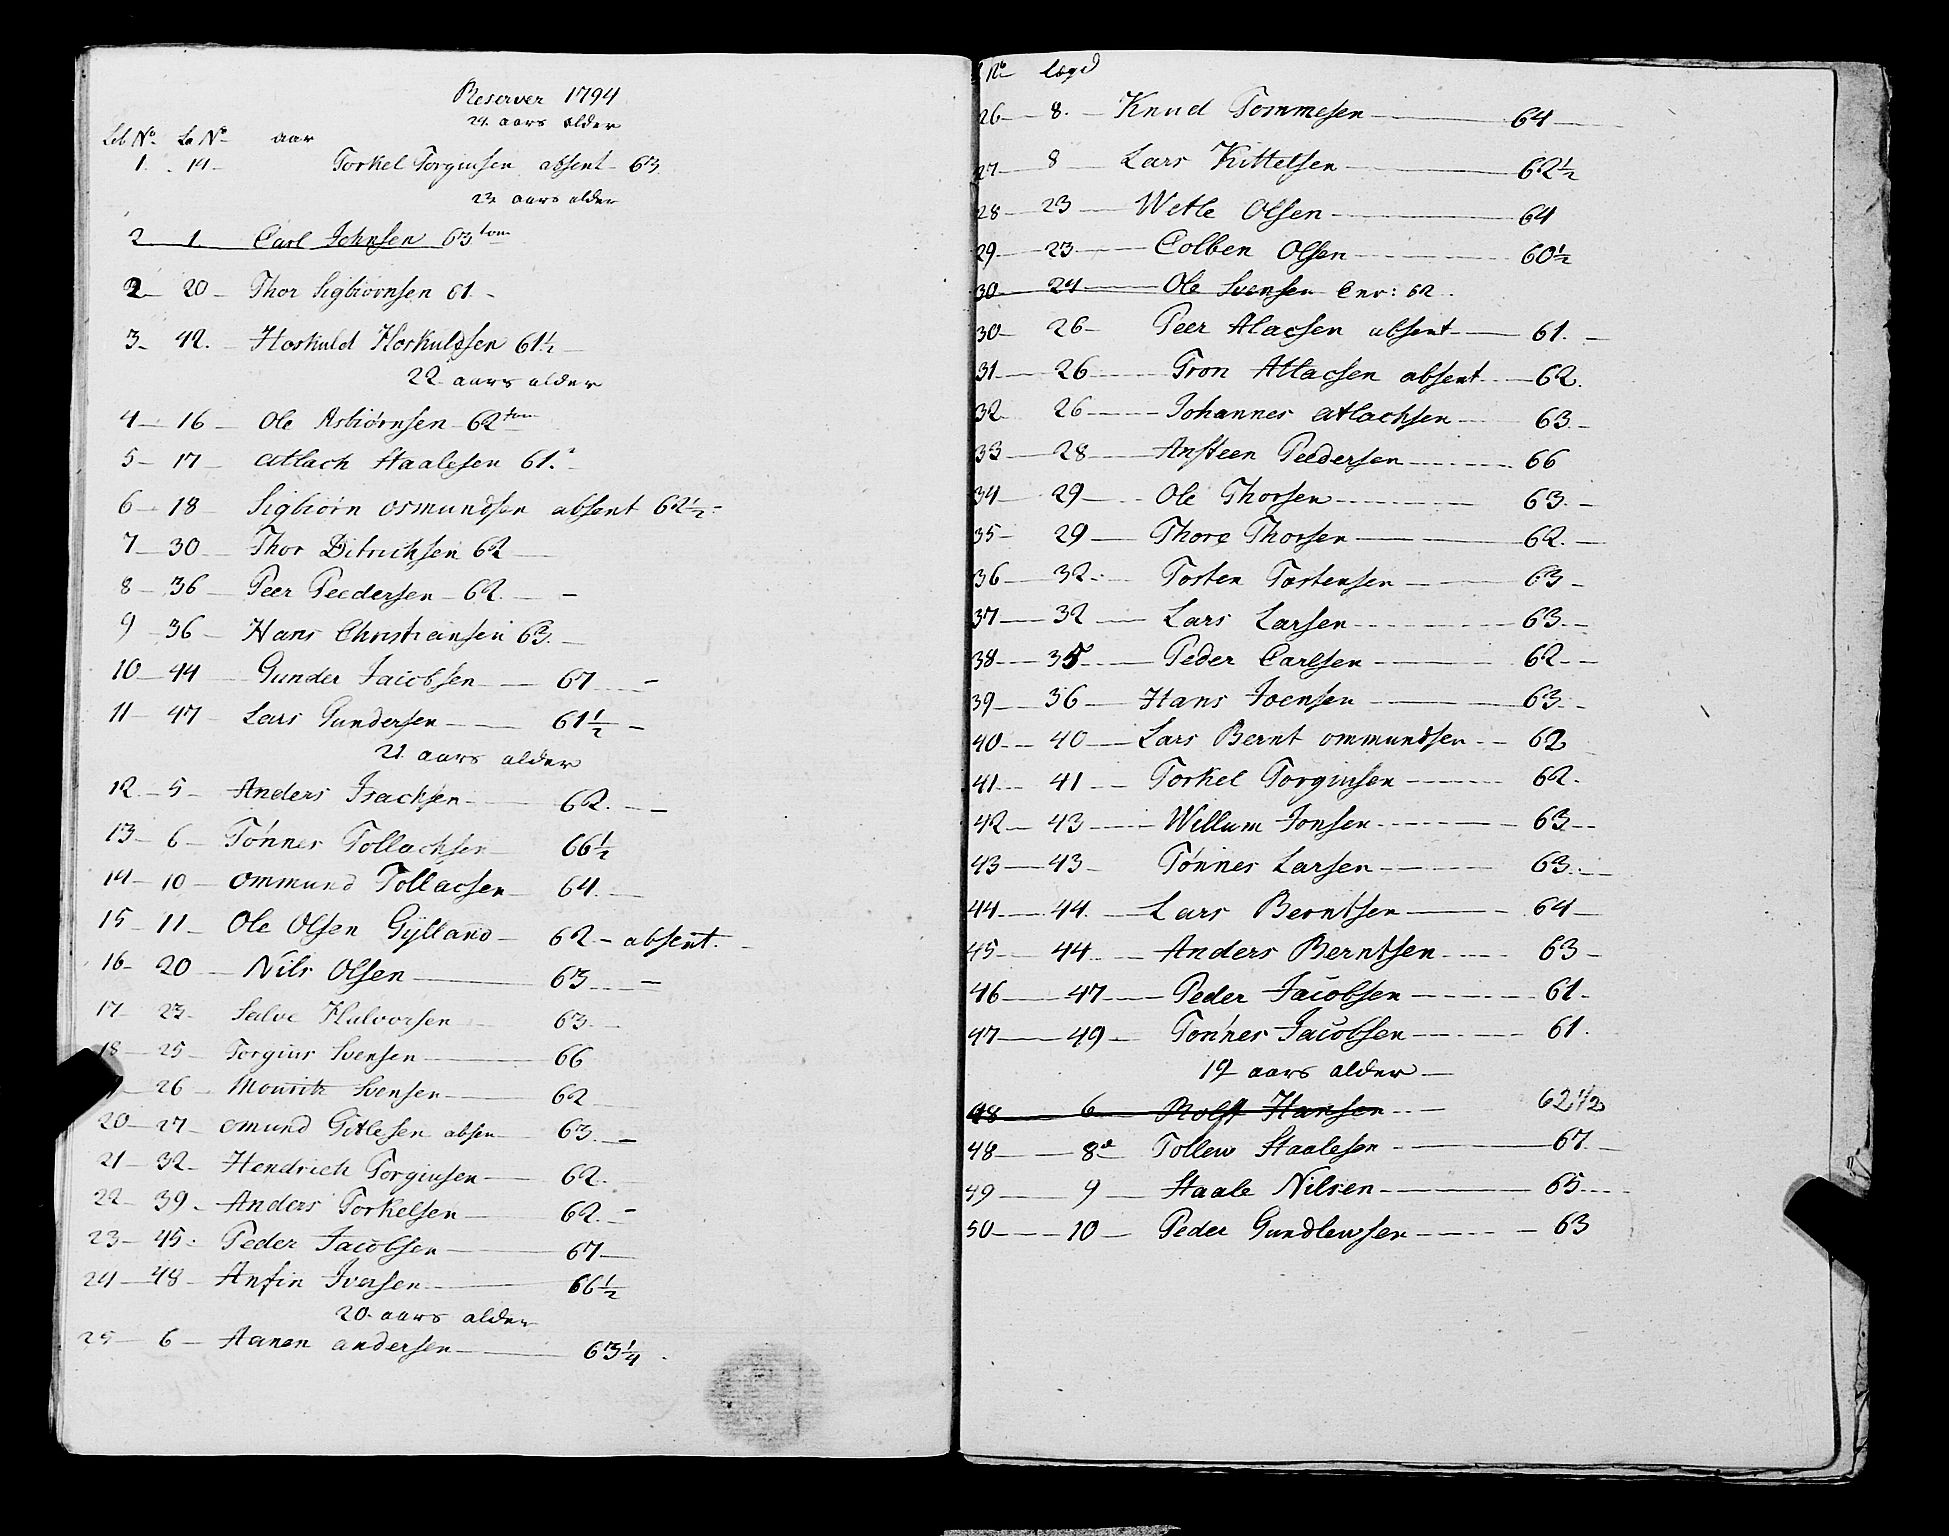 Reserver 1794
24 aars alder
Lb No Le No aar
1. 14 Torkel Torgiusen absent 63
23 aars alder
2 1 Carl Johnsen 63 tom
2 20 Thor Sigbiørnsen 61
3 42. Hoskuld Hoskuldsen 61½
22 aars alder
4 16 Ole Asbiørnsen 62 tom
5 17 Atlach Staalesen 61.
6 18 Sigbiørn Osmundsen absent 62½
7 30 Thor Ditrichsen 62
8 36 Peer Peedersen 62.
9 36 Hans Christiansen 63.
10 44 Gunder Jacobsen 67
11 47 Lars Gundersen 61½
21 aars alder
12 5 Anders Isachsen 62.
13 6 Tönnes Tollachsen 66½
14 10 Ommund Tollacsen 64.
15 11 Ole Olsen Gÿlland 62. absent.
16 20 Nils Olsen 63
17 23 Salve Halvorsen 63.
18 25 Torgius Svensen 66
26 Mouritz Svensen 62
20 27 Omund Gitlesen absen 63.
21 32 Hendrich Torgiusen 62.
22 39 Anders Torkelsen 62.
23 45 Peder Jacobsen 67
24 48 Anfin Iversen 66½
20 aars alder
25 6 Aanen Andersen 63¼
No Lægd
26 8. Knud Tommesen 64
27 8 Lars Kittelsen 62½
28 23 Wetle Olsen 64
29 23 Colben Olsen 60½
30 24 Ole Svensen Enr: 62.
30 26 Peer Alacsen absent 61.
31 26 Tron Atlacsen absent 62.
32 26 Johannes Atlachsen 63.
33 28 Ansteen Peedersen 66
34 29 Ole Thorsen 63.
35 29 Thore Thorsen 62.
36 32 Tosten Tostensen 63
37 32 Lars Larsen 63.
38 35 Peder Carlsen 62
39 36 Hans Joensen 63
40 40 Lars Bernt Ommundsen 62
41 41 Torkel Torgiusen 62.
42 43 Willum Jonsen 63
43 43 Tönnes Larsen 63.
44 44 Lars Berntsen 64
45 44 Anders Berntsen 63
46 47 Peder Jacobsen 61.
47 49 Tönnes Jacobsen 61.
19 aars alder
48 6 Rolff Hansen 62 1/2
48 8 Tollew Staalesen 67
49 9 Staale Nilsen 65
50 10 Peder Gundlewsen 63